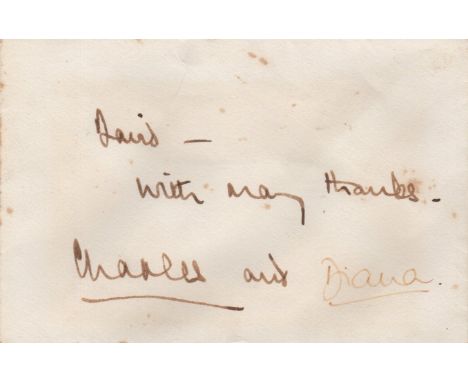 David —
with many thanks -
Charles and Diana.